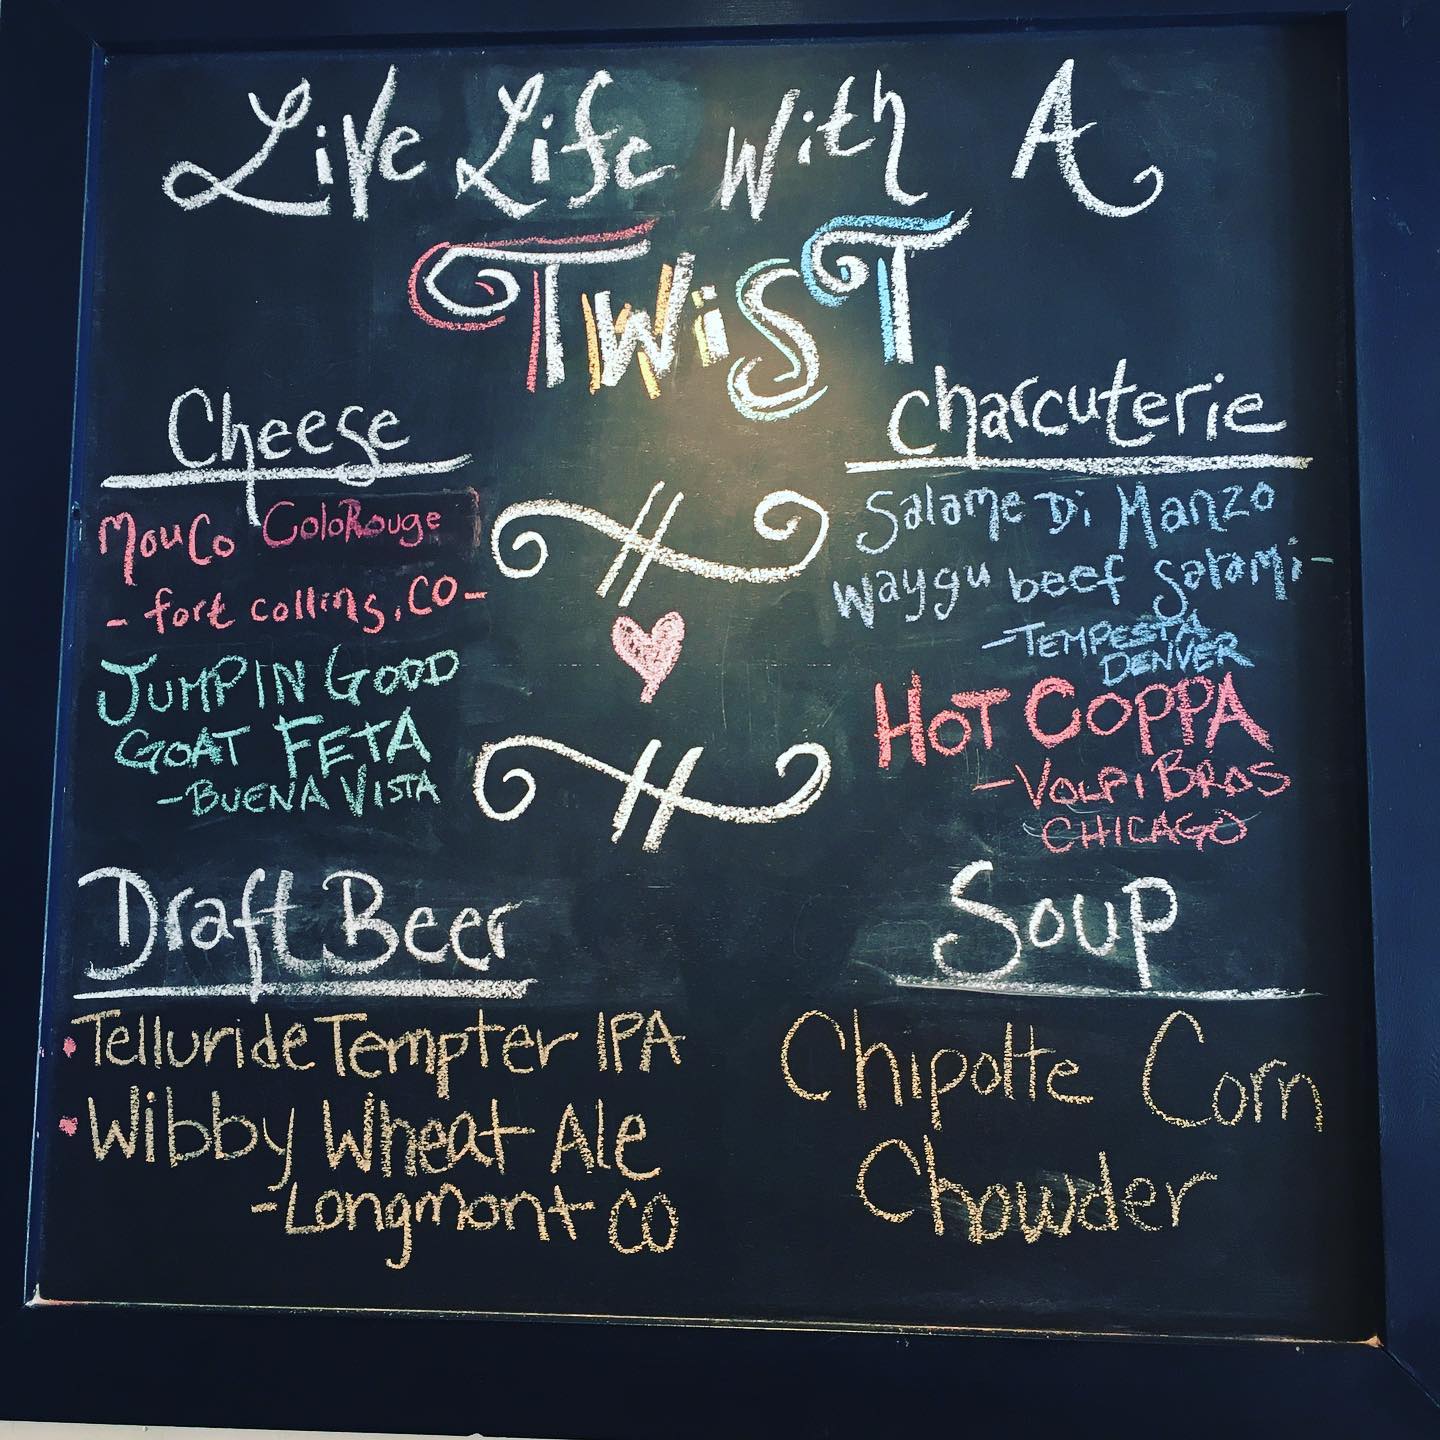 Live Life With A
TWiST
Cheese
MouCo ColoRouge
- fort collins, CO -
JUMPIN GOOD
GOAT FETA
- BUENA VISTA
Charcuterie
Salame Di Manzo
Waygu beef salami -
- TEMPESTA
DENVER
HOT COPPA
- VOLPI BROS
CHICAGO
Draft Beer
• Telluride Tempter IPA
• Wibby Wheat Ale
- Longmont CO
Soup
Chipolte Corn
Chowder